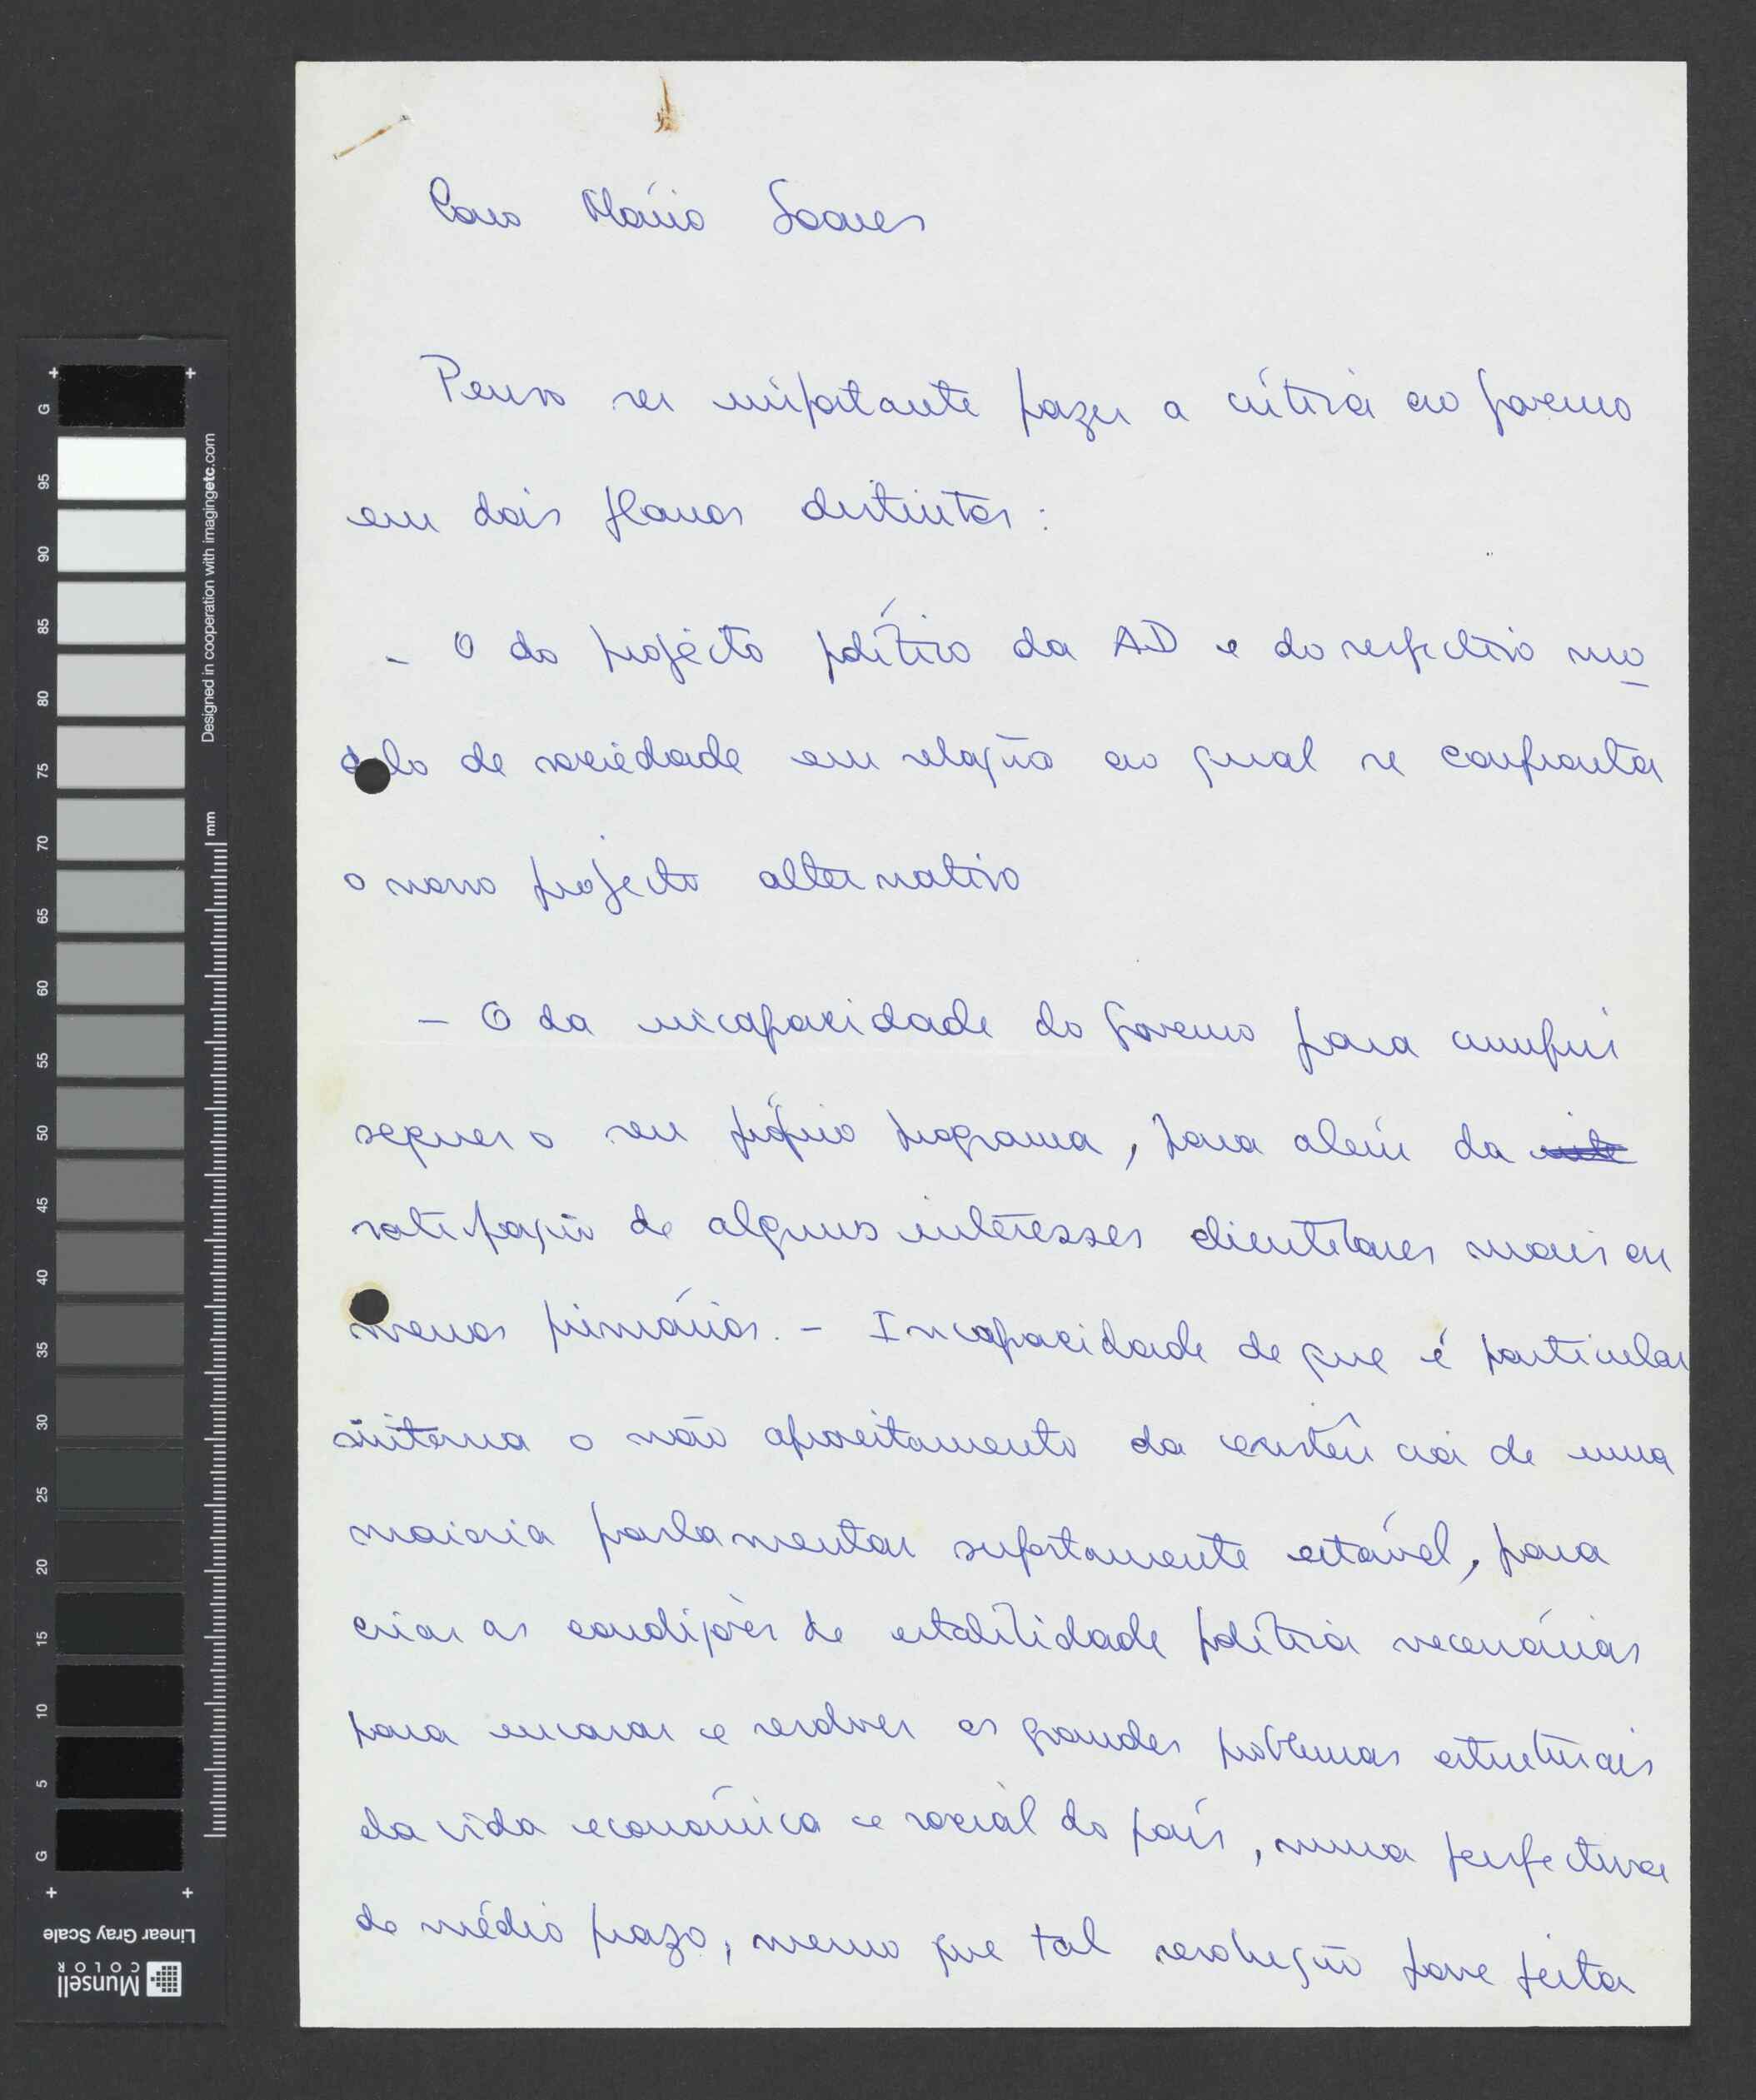 Caro Mário Soares
Penso ser importante fazer a crítica ao governo
em dois planos distintos:
- O do projécto político da AD e do respectivo mo
delo de sociedade em relação ao qual se confronta
o nosso projecto alternativo
- O da incapacidade do Governo para cumprir
sequer o seu próprio programa, para além da
satisfação de alguns interesses clientelares mais ou
menos primários. - Incapacidade de que é particular
sintoma o não aproveitamento da existência de uma
maioria parlamentar supostamente estável, para
criar as condições de estabilidade política necessárias
para encarar e resolver os grandes problemas estruturais
da vida económica e social do país, numa perspectiva
de médio prazo, mesmo que tal resolução fosse feita
G
95
90
85
80
75
70
65
60
55
50
45
40
35
30
25
20
15
10
5
G
Designed in cooperation with imagingetc.com
mm
Linear Gray Scale
Munsell
COLOR